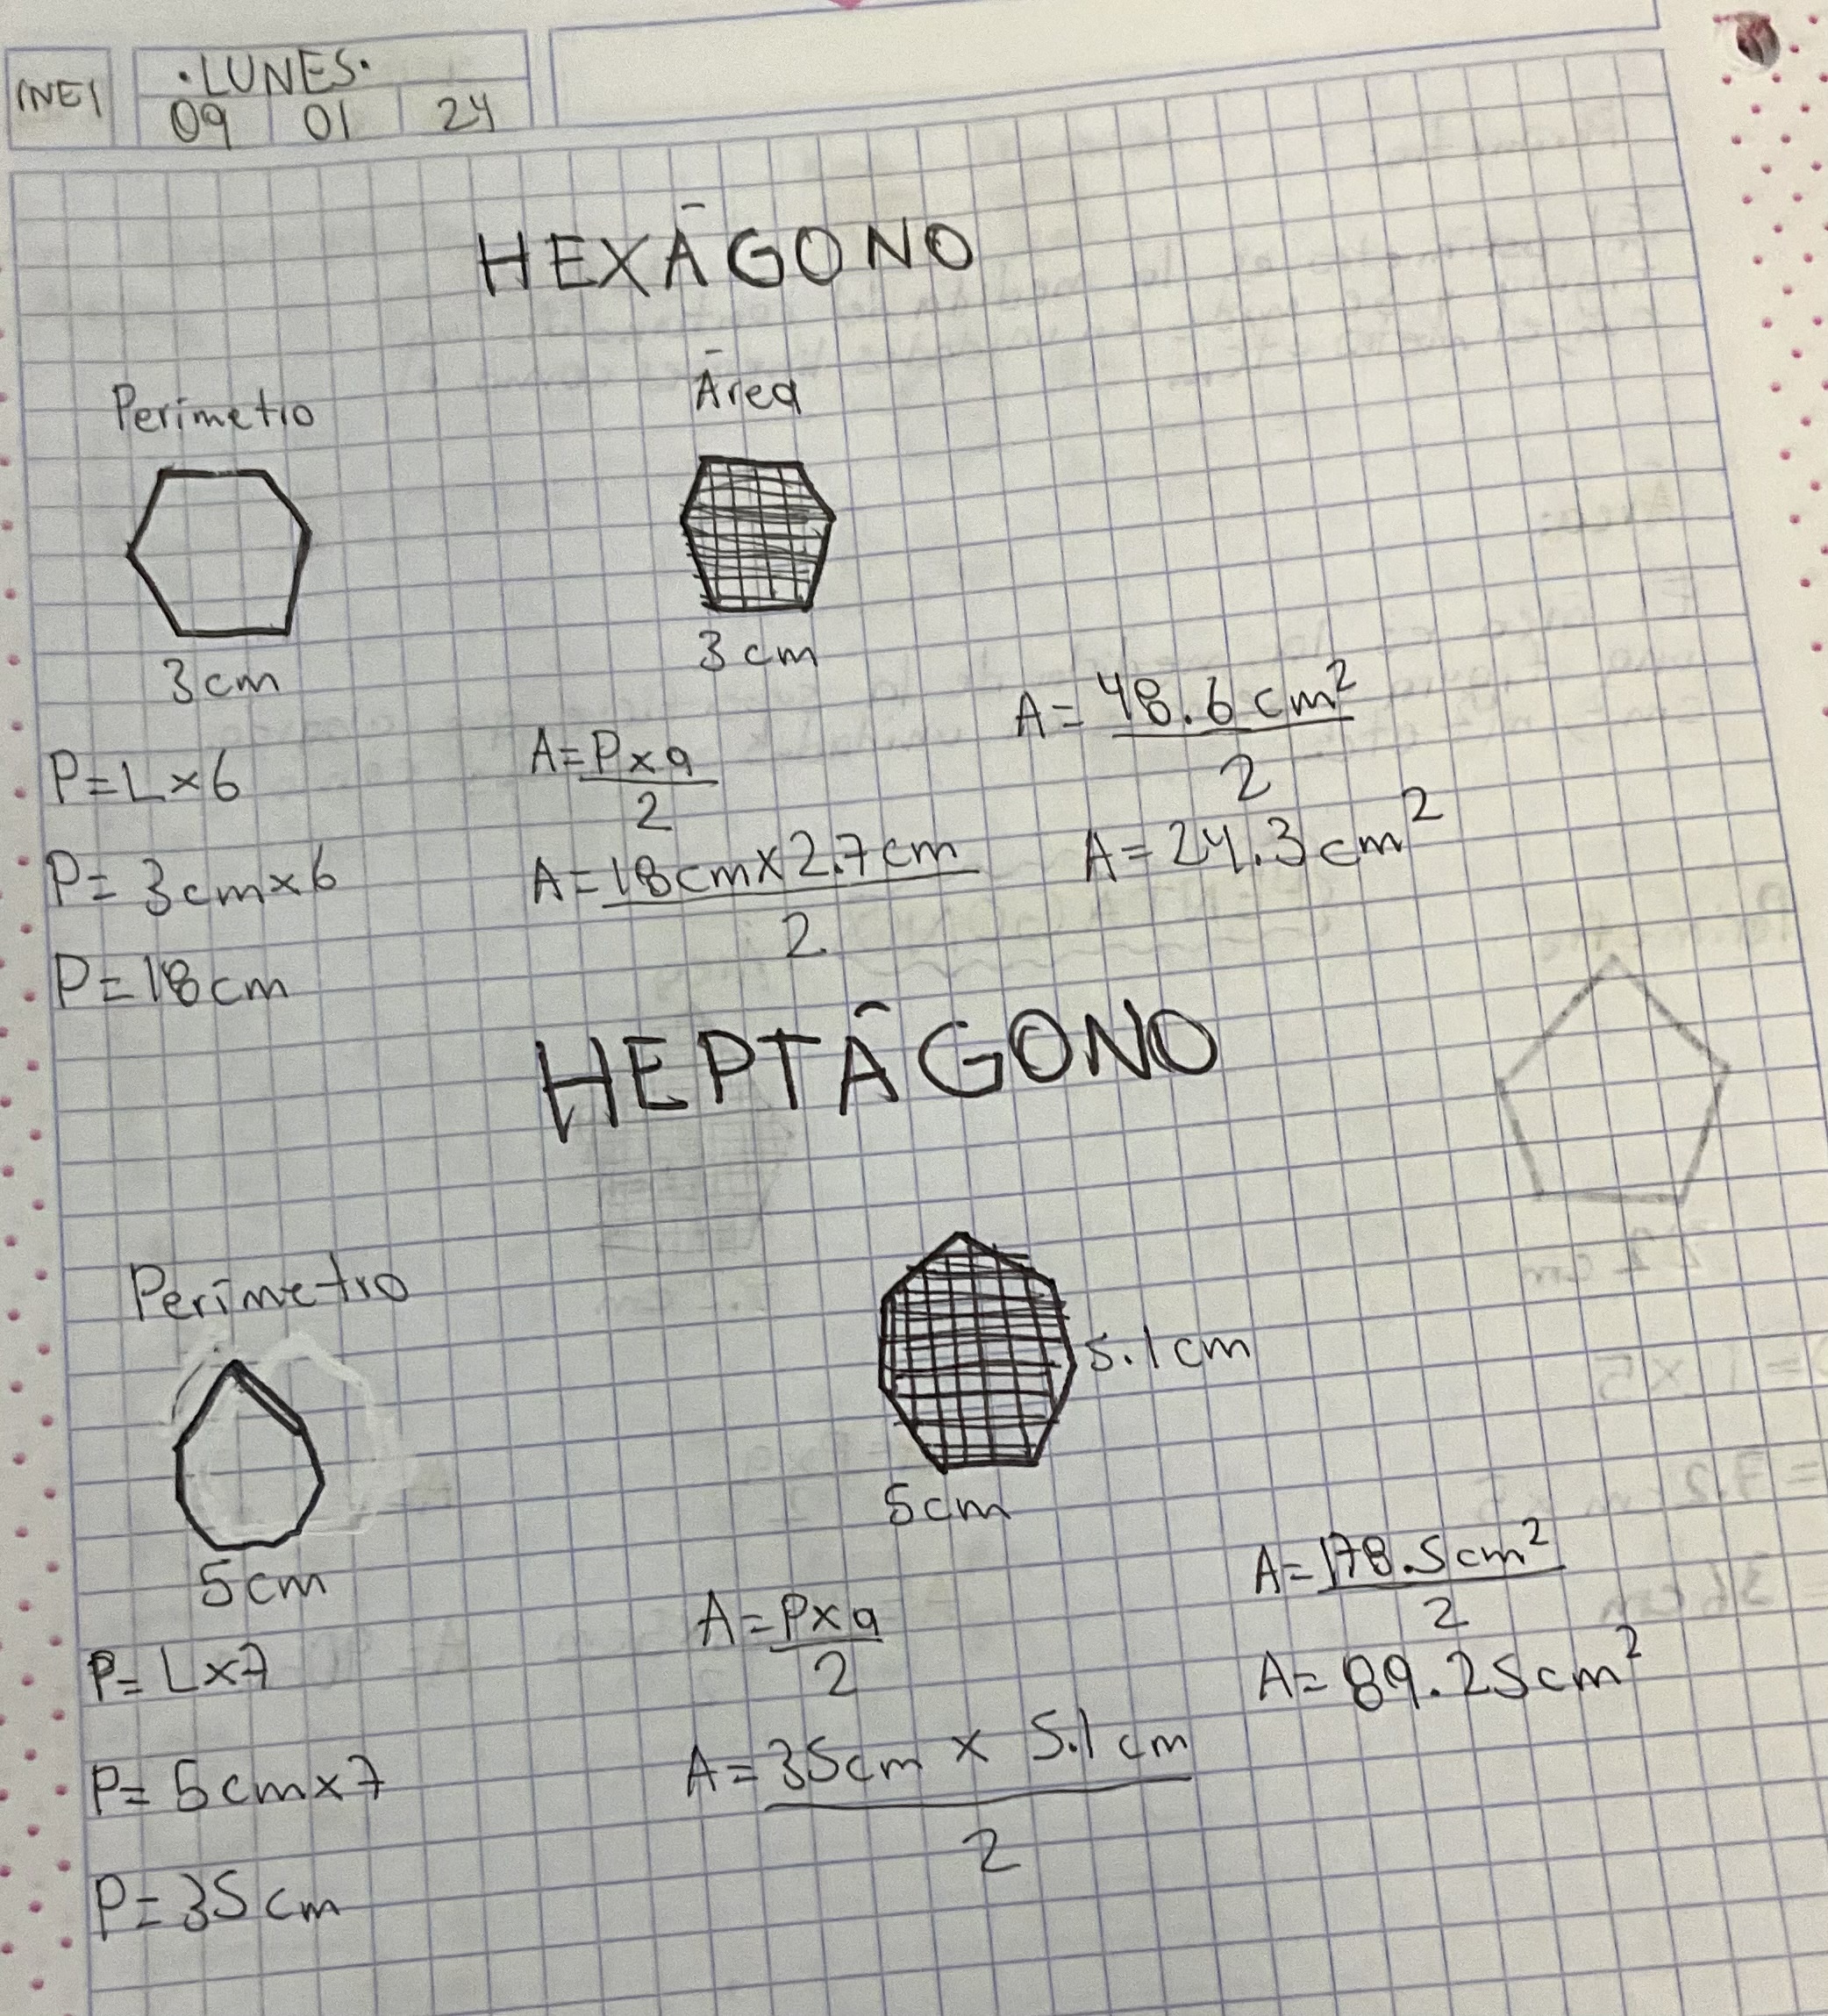 ENE1
·LUNES·
09 01 24
HEXÁGONO
Perimetro
Área
3cm
3cm
P=L×6
P=3cm×6
P=18cm
A=P×a
2
A=18cm×2.7cm
2
A=48.6cm²
2
A=24.3cm²
HEPTÁGONO
Perimetro
5cm
5.1cm
5cm
P=L×7
P=5cm×7
P=35cm
A=P×a
2
A=35cm × 5.1cm
2
A=178.5cm²
2
A=89.25cm²